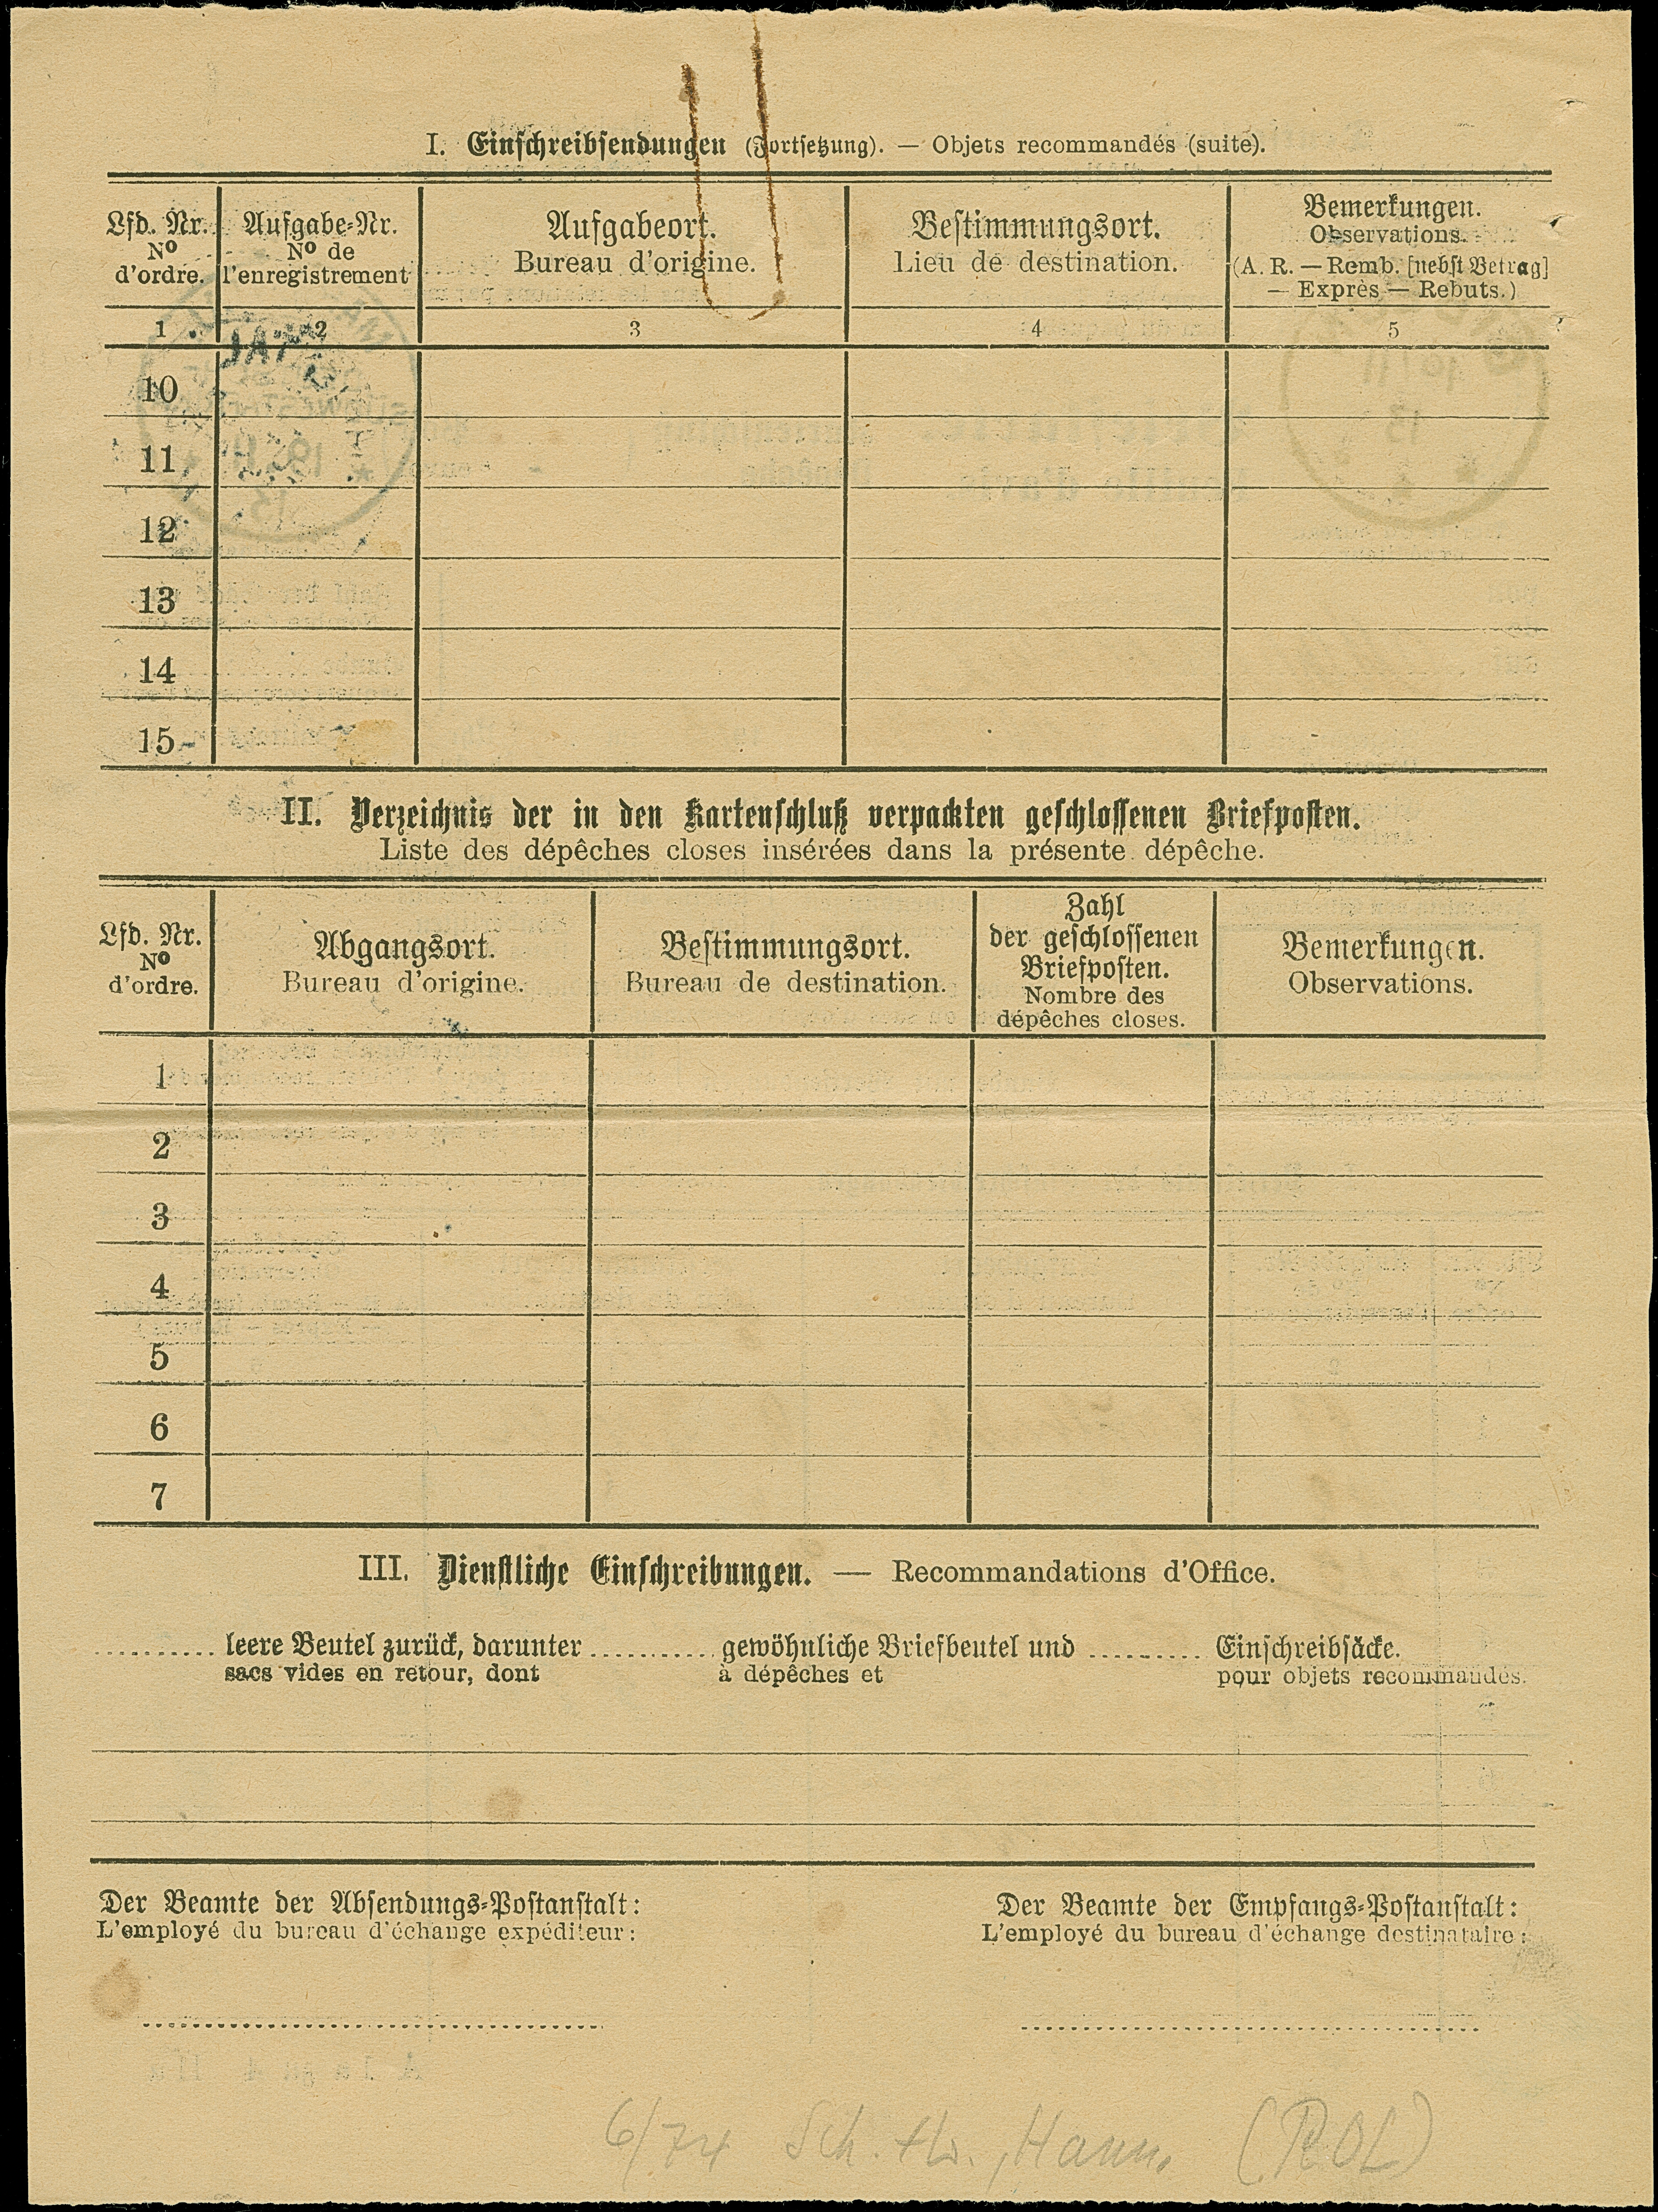 I. Einschreibsendungen (Fortsetzung). — Objets recommandés (suite).
Lfd. Nr.
Nº
d'ordre.
Aufgabe-Nr.
Nº de
l'enregistrement
Aufgabeort.
Bureau d'origine.
Bestimmungsort.
Lieu de destination.
Bemerkungen.
Observations.
(A. R. — Remb. [nebst Betrag]
— Exprès — Rebuts.)
1 2 3 4 5
10
11
12
13
14
15
II. Verzeichnis der in den Kartenschluß verpackten geschlossenen Briefposten.
Liste des dépêches closes insérées dans la présente dépêche.
Lfd. Nr.
Nº
d'ordre.
Abgangsort.
Bureau d'origine.
Bestimmungsort.
Bureau de destination.
Zahl
der geschlossenen
Briefposten.
Nombre des
dépêches closes.
Bemerkungen.
Observations.
1
2
3
4
5
6
7
III. Dienstliche Einschreibungen. — Recommandations d'Office.
.......... leere Beutel zurück, darunter .......... gewöhnliche Briefbeutel und .......... Einschreibsäcke.
sacs vides en retour, dont à dépêches et pour objets recommandés.
Der Beamte der Absendungs-Postanstalt:
L'employé du bureau d'échange expéditeur:
Der Beamte der Empfangs-Postanstalt:
L'employé du bureau d'échange destinataire:
6/74 Sch. , Hann. (ROL)